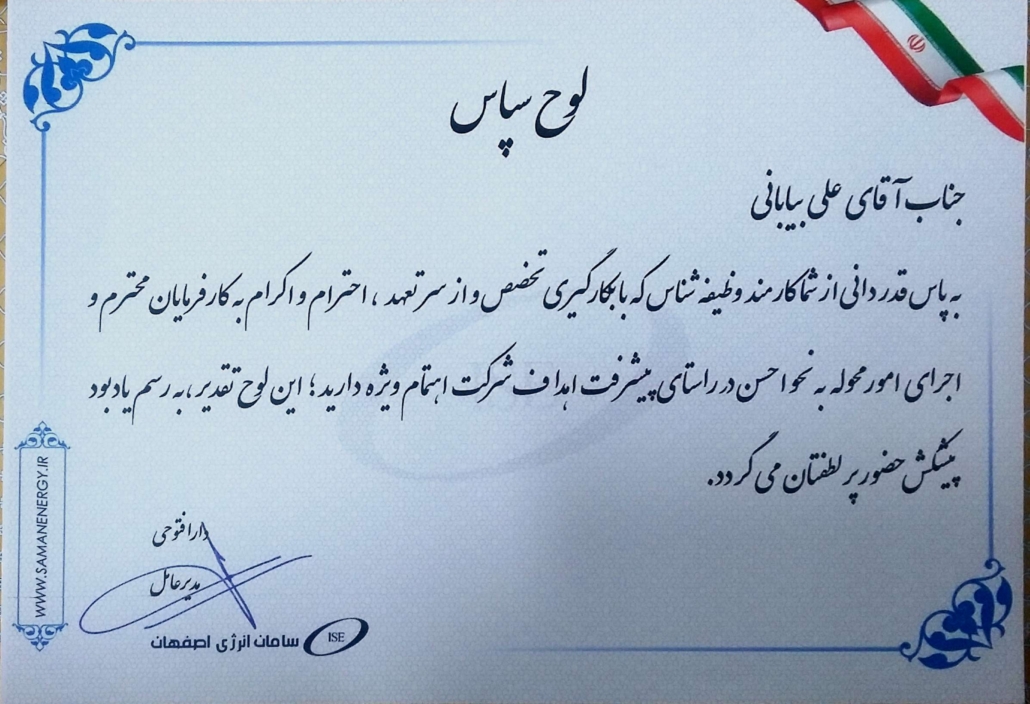 لوح سپاس
جناب آقای علی بیابانی
به پاس قدردانی از شما کارمند وظیفه شناس که با بکارگیری تخصص و از سر تعهد ، احترام و اکرام به کارفرمایان محترم و
اجرای امور محوله به نحو احسن در راستای پیشرفت اهداف شرکت اهتمام ویژه دارید؛ این لوح تقدیر، به رسم یادبود
پیشکش حضور پر لطفتان می گردد.
دارا فتوحی
مدیرعامل
سامان انرژی اصفهان
ISE
WWW.SAMANENERGY.IR